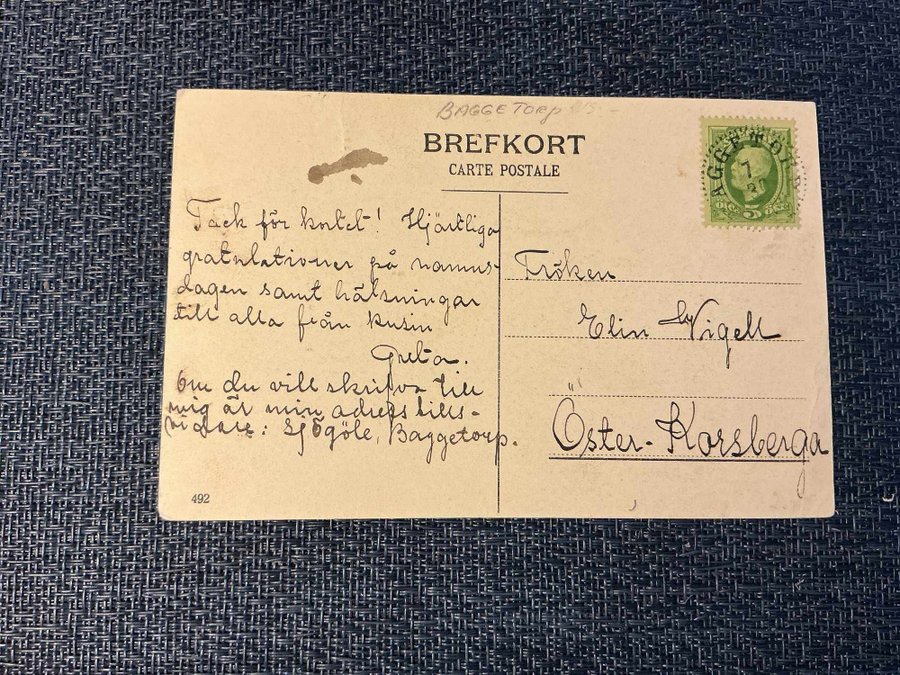 BAGGETORP
BREFKORT
CARTE POSTALE
5
Tack för kortet! Hjärtliga
gratulationer på namns-
dagen samt hälsningar
till alla från kusin
Greta.
Om du vill skrifva till
mig är min adress tills-
vidare: Sjögöle, Baggetorp.
492
Fröken
Elin Vigell
Öster-Korsberga